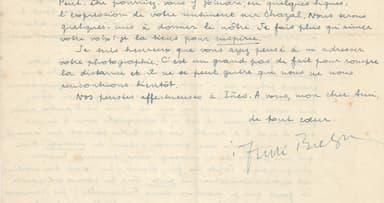 Peut-être pourriez-vous y joindre, en quelques lignes,
l'expression de votre sentiment sur Chazal. Nous serons
quelques-uns à donner le nôtre. Je fais plus qu'aimer
votre voix : je la tiens pour inspirée.
Je suis heureux que vous ayez pensé à m'adresser
votre photographie. C'est un grand pas de fait pour rompre
la distance et il ne se peut guère que nous ne nous
rencontrions bientôt.
Nos pensées affectueuses à Inès. A vous, mon cher ami,
de tout cœur.